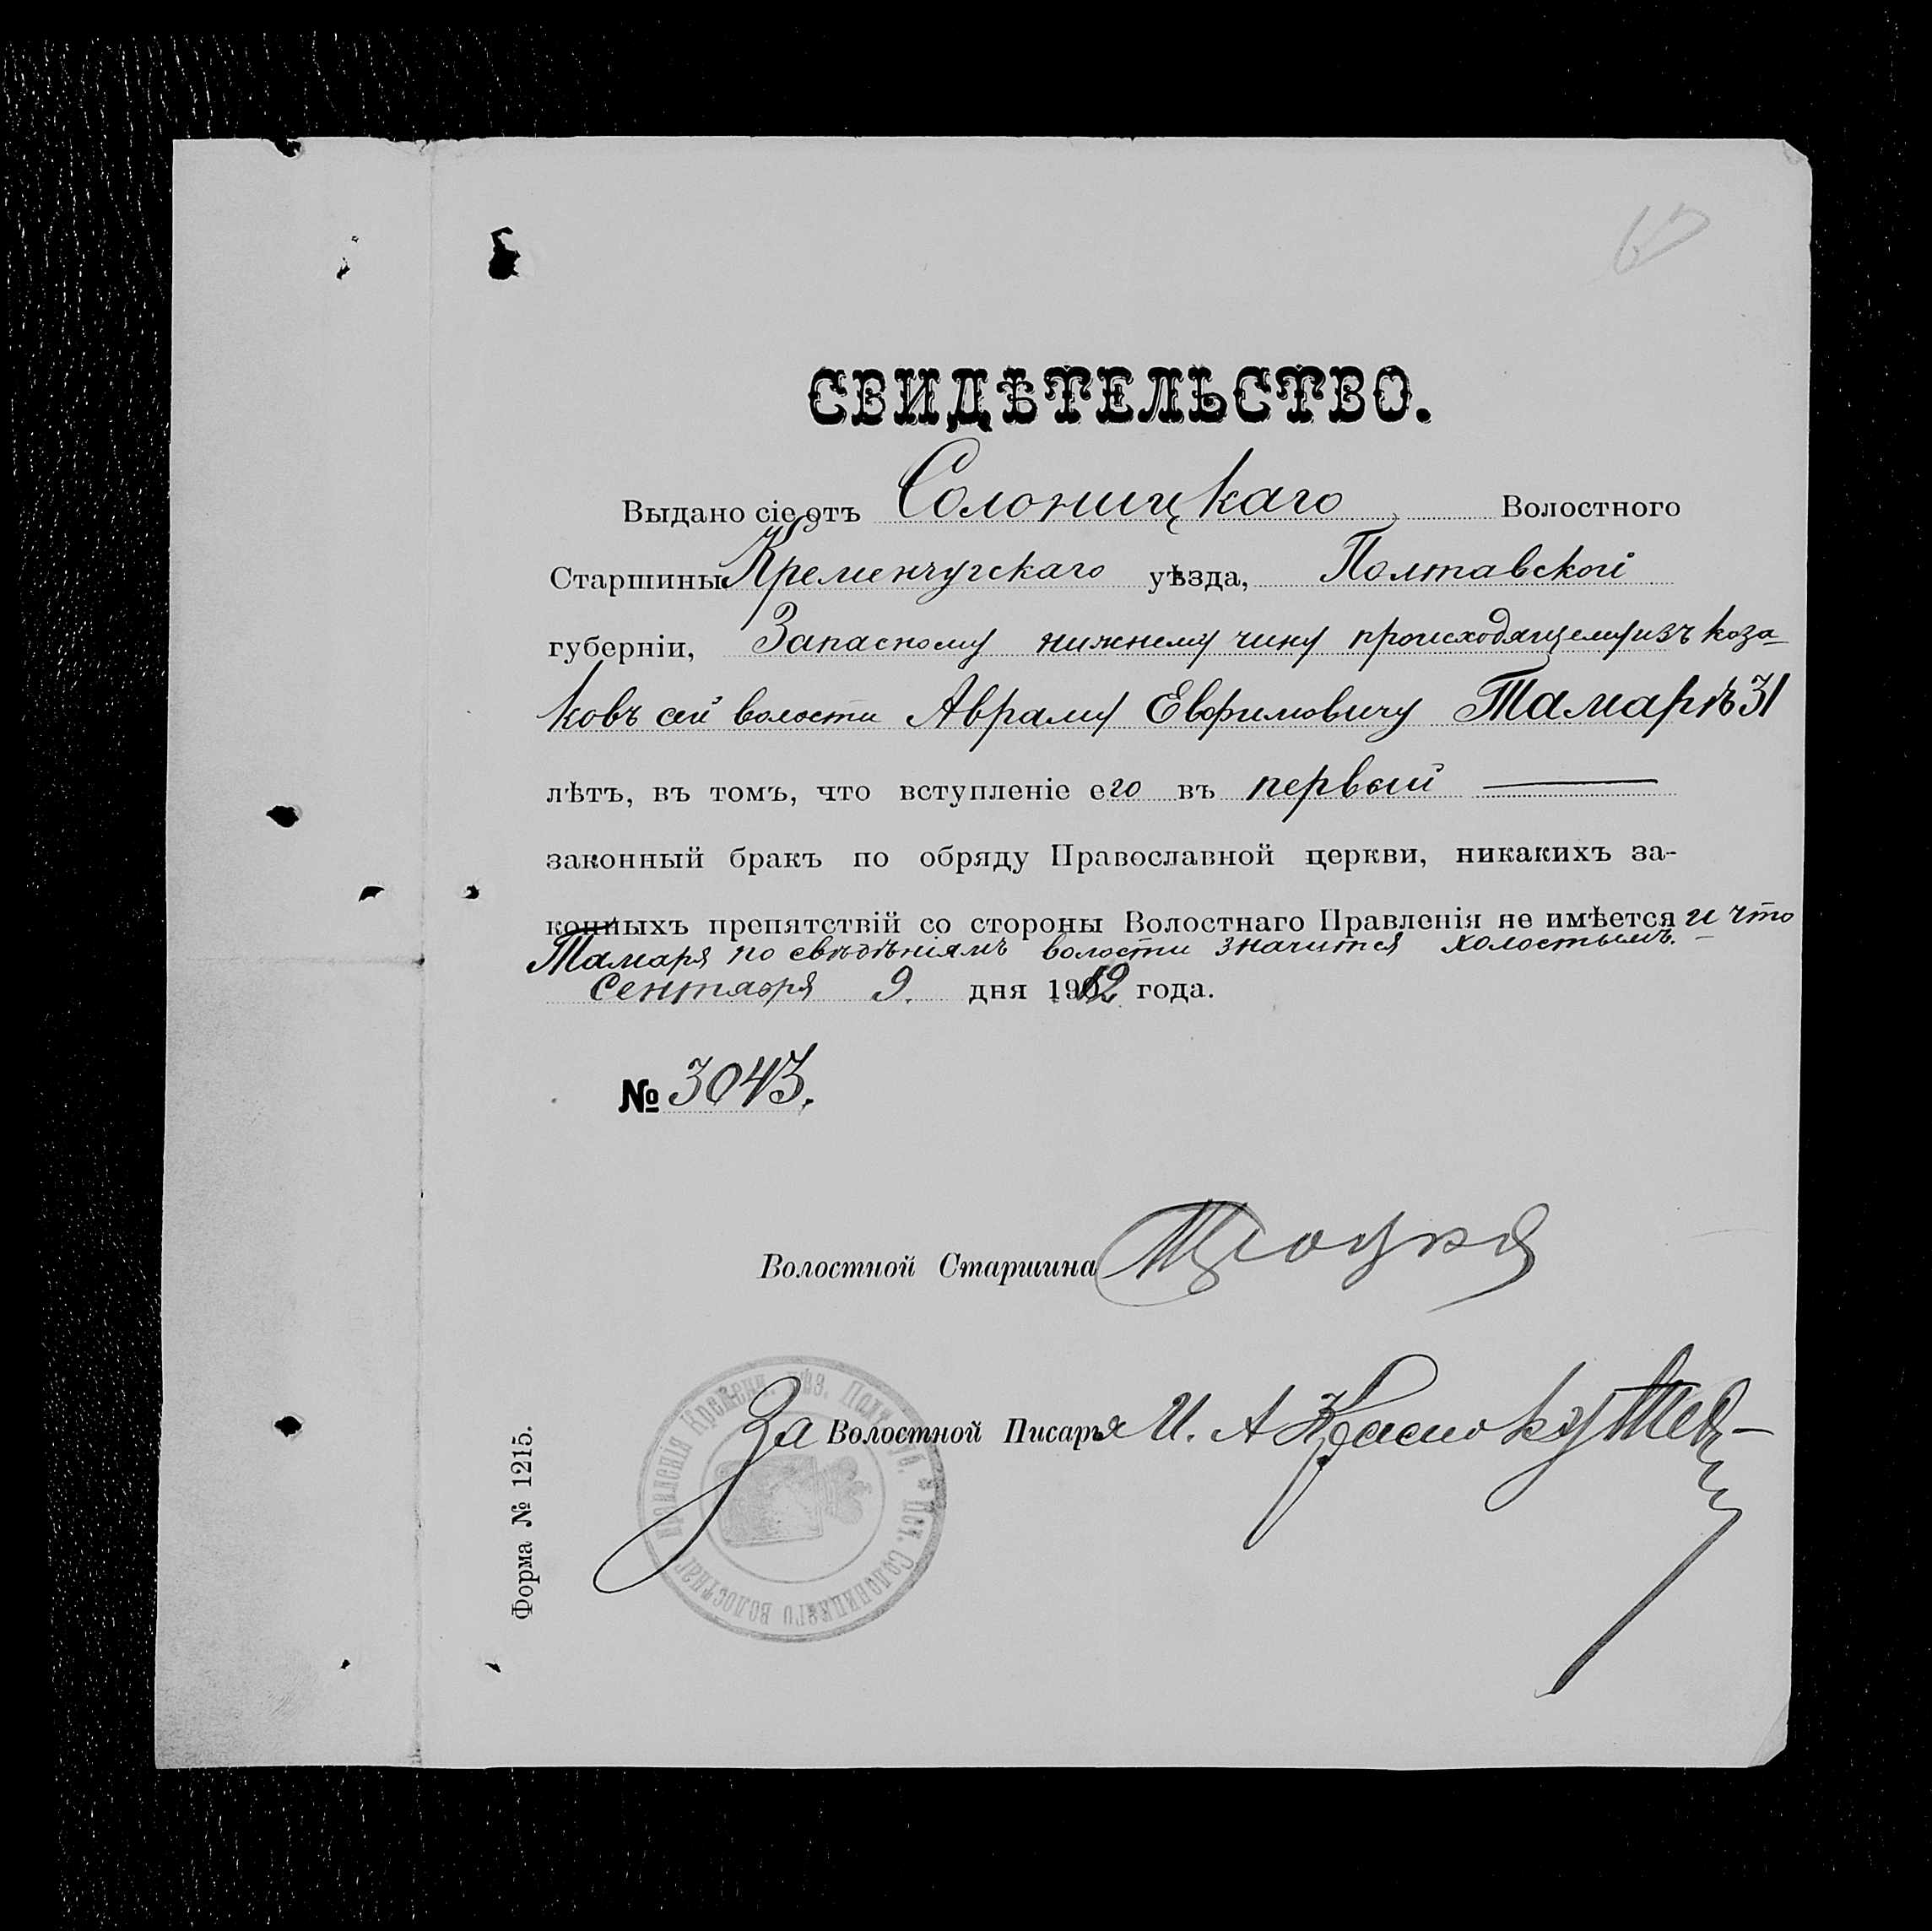 СВИДѢТЕЛЬСТВО.
Выдано сіе отъ Солоницкаго Волостного
Старшины Кременчугскаго уѣзда, Полтавской
губерніи, Запасному нижнему чину происходящему изъ коза-
ковъ сей волости Авраму Евфимовичу Тамарѣ 31
лѣтъ, въ томъ, что вступленіе его въ первый
законный бракъ по обряду Православной церкви, никакихъ за-
конныхъ препятствій со стороны Волостнаго Правленія не имѣется и что
Тамаря по свѣдѣніямъ волости значится холостымъ.
Сентября 9. дня 1912 года.
№ 3043.
Волостной Старшина
За Волостной Писаря И. А
Печ. Солоницкаго Волостнаг. Правленія Кременч. Уѣз. Полт. Губ.
Форма № 1215.